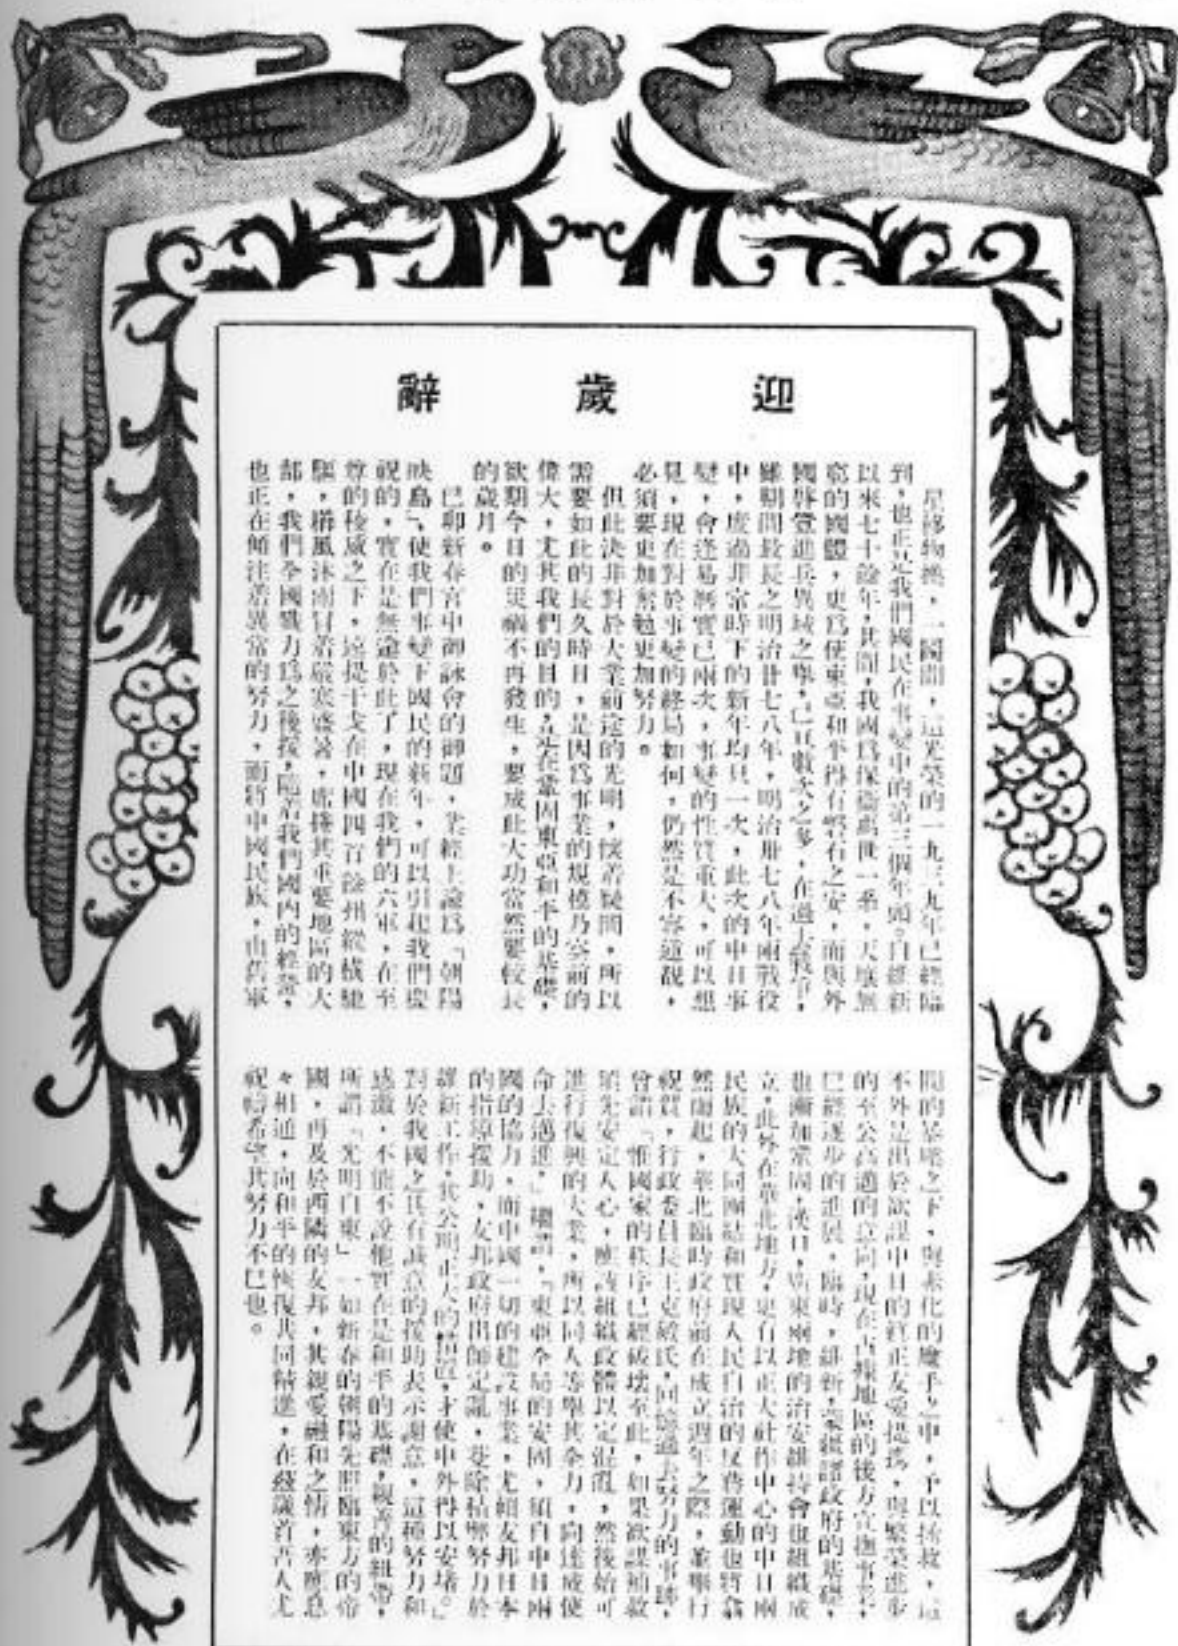 迎歲辭
星移物換,一瞬間,這光榮的一九三九年已經臨
到,也正是我們國民在事變中的第三個年頭。自維新
以來七十餘年,其間,我國爲保衞萬世一系,天壤無
窮的國體,更爲使東亞和平得有磐石之安,而與外
國啓釁進兵異域之舉,已有數次之多,在過去戰爭,
雖期間最長之明治廿七八年,明治卅七八年兩戰役
中,度過非常時下的新年均只一次,此次的中日事
變,會逢易曆實已兩次,事變的性質重大,可以想
見,現在對於事變的終局如何,仍然是不容逆覩,
必須要更加奮勉更加努力。
但此決非對於大業前途的光明,懷着疑問,所以
需要如此的長久時日,是因爲事業的規模乃空前的
偉大,尤其我們的目的,是在鞏固東亞和平的基礎,
欲期今日的災禍不再發生,要成此大功當然要較長
的歲月。
己卯新春宮中御詠會的御題,業經上諭爲「朝陽
映島」,使我們事變下國民的新年,可以引起我們慶
祝的,實在是無逾於此了,現在我們的六軍,在至
尊的稜威之下,遠提干戈在中國四百餘州縱橫馳
驅,櫛風沐雨冒着嚴寒盛暑,席捲其重要地區的大
部,我們全國戰力爲之後援,隨着我們國內的經營,
也正在傾注着異常的努力,而將中國民族,由舊軍
閥的暴壓之下,與赤化的魔手之中,予以拯救,這
不外是出於欲謀中日的眞正友愛提携,與繁榮進步
的至公高邁的意向,現在占據地區的後方宣撫事業,
已經逐步的進展,臨時,維新,蒙疆諸政府的基礎,
也漸加鞏固,漢口,廣東兩地的治安維持會也組織成
立,此外在華北地方,更有以正大社作中心的中日兩
民族的大同團結和實現人民自治的反蔣運動也將翕
然而起,華北臨時政府前在成立週年之際,並舉行
祝賀,行政委員長王克敏氏,回憶過去努力的事跡,
曾謂「惟國家的秩序已經破壞至此,如果欲謀補救
須先安定人心,應該組織政體以定混亂,然後始可
進行復興的大業,所以同人等舉其全力,向達成使
命去邁進,」繼謂,「東亞全局的安固,須自中日兩
國的協力,而中國一切的建設事業,尤賴友邦日本
的指導援助,友邦政府出師定亂,芟除積弊努力於
維新工作,其公明正大的措置,才使中外得以安堵。」
對於我國之具有誠意的援助表示謝意,這種努力和
感激,不能不說他實在是和平的基礎,親善的紐帶,
所謂「光明自東」一如新春的朝陽先照臨東方的帝
國,再及於西隣的友邦,其親愛融和之情,亦應息
々相通,向和平的恢復共同精進,在茲歲首吾人尤
祝禱希望其努力不已也。